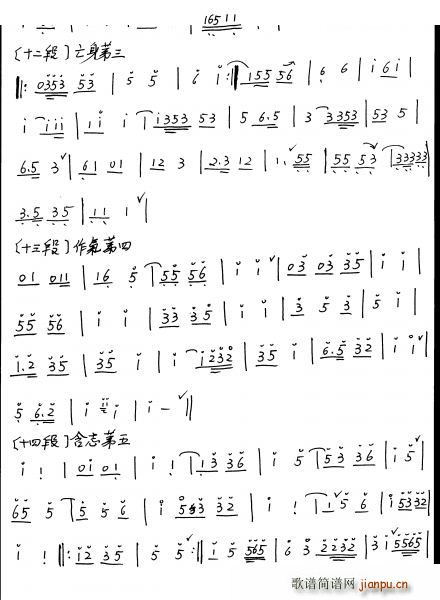 165 11
〔十二段〕亡身第三
‖: 0353 53 | 5 5 | 6 i :‖ 155 56 | 6 6 | i 6 i |
i i i i | 1 i i | i 353 53 | 5 6.5 | 3 3353 | 53 5 |
6.5 3 | 61 01 | 12 3 | 2.3 12 | 1. 55 | 55 53 | 33333
3.5 35 | 11 1 ‖
〔十三段〕作氣第四
01 011 | 16 5 | 55 56 | i i | 03 03 35 | i i |
55 56 | i i | 33 35 | i i | 3 5 3 | 5 i |
1.2 35 | 35 i | i 232 | 35 i | 6.5 32 | i i |
5 6.2 | i i | i — ‖
〔十四段〕含志第五
i ! | 0i 01 | i ! | 13 36 | i 5 | 53 36 | i 5 |
65 5 | 5 5 6 | i 5 3 32 | i > | 1 5 6 | i 5332 |
i ! ‖: i2 35 | 5 5 :‖ i 5 565 | 6 3 2232 | 3 i 5565 |
歌谱简谱网 jianpu.cn